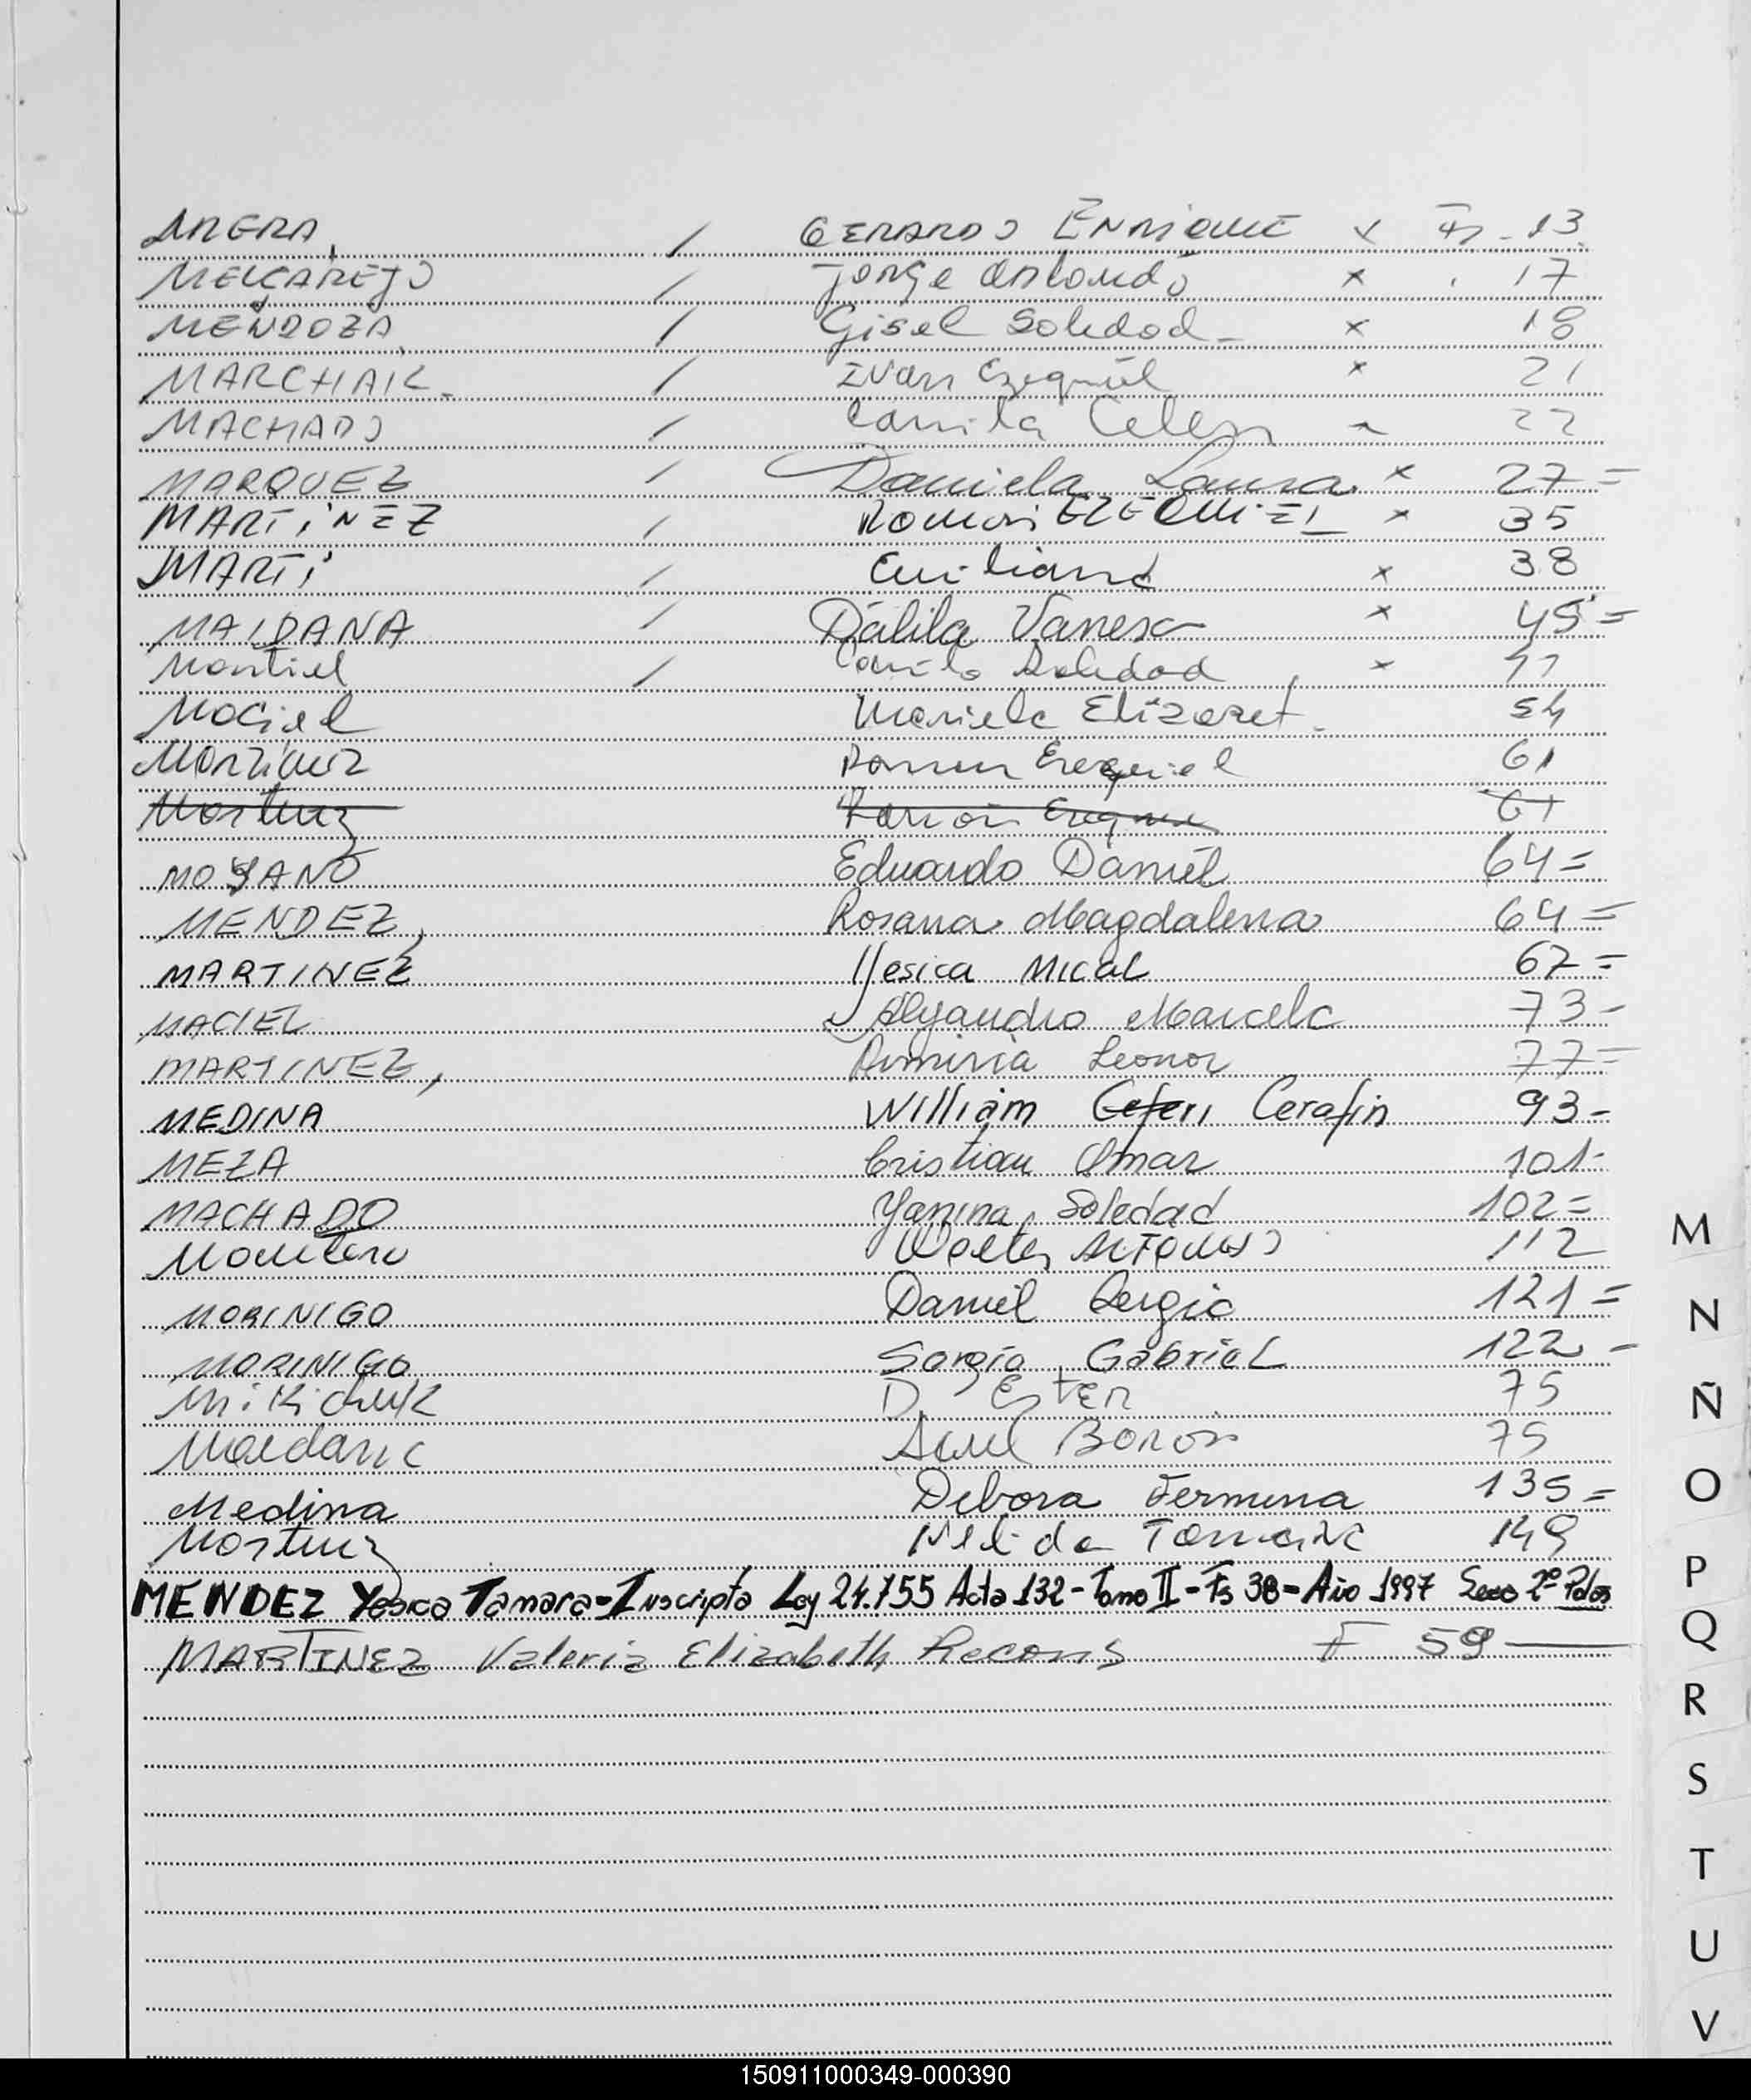 / GERARDO ENRIQUE x Fs - 13
MELGAREJO / Jorge Orlando x 17
MENDOZA / Gisel Soledad - x 18
MARCHAK - / Ivan Ezequiel x 21
MACHADO / Camila Celes 22
MARQUEZ / Daniela Laura x 27 =
MARTINEZ / Roman EZEQUIEL x 35
MARTI / Emiliano x 38
MAIDANA / Dálila Vanesa x 45 =
Montiel / Soledad x
Maciel Mariela Elizabet - 54
Martinez Ramon Ezequiel 61
Martinez Ramon 61
MOYANO Eduardo Daniel 64 =
MENDEZ, Rosana Magdalena 64 =
MARTINEZ Yesica Mical 67 =
MACIEL Alejandro Marcelo 73 -
MARTINEZ, Leonor 77 =
MEDINA William Ceferi Cerafin 93 -
MEZA Cristian Omar 101 -
MACHADO Yanina Soledad 102 =
Montero Walter 112
MORINIGO Daniel Sergio 121 =
MORINIGO Sergio Gabriel 122 -
D. Ester 75
Maidana 75
Medina Debora Fermina 135 =
Martinez Nelida 149
MENDEZ Yesica Tamara - Inscripta Ley 24.755 Acta 132 - Tomo II - Fs 38 - Año 1997 Secc 2º Pdas
MARTINEZ Valeria Elizabeth Recons F 59
M
N
Ñ
O
P
Q
R
S
T
U
V
150911000349-000390